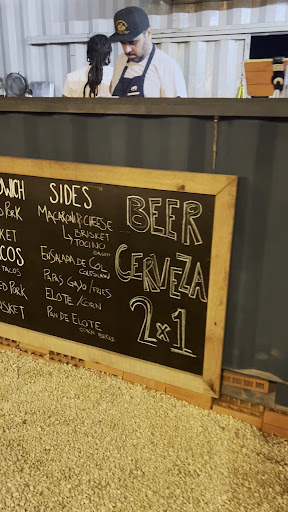 WICH
ED PORK
KET
COS
TACOS
ED PORK
ISKET
SIDES
MACARONI & CHEESE
BRISKET
TOCINO
BACON
ENSALADA DE COL
COLESLAW
PAPAS GAJO/FRIES
ELOTE/CORN
PAN DE ELOTE
CORN BREAD
BEER
CERVEZA
2x1